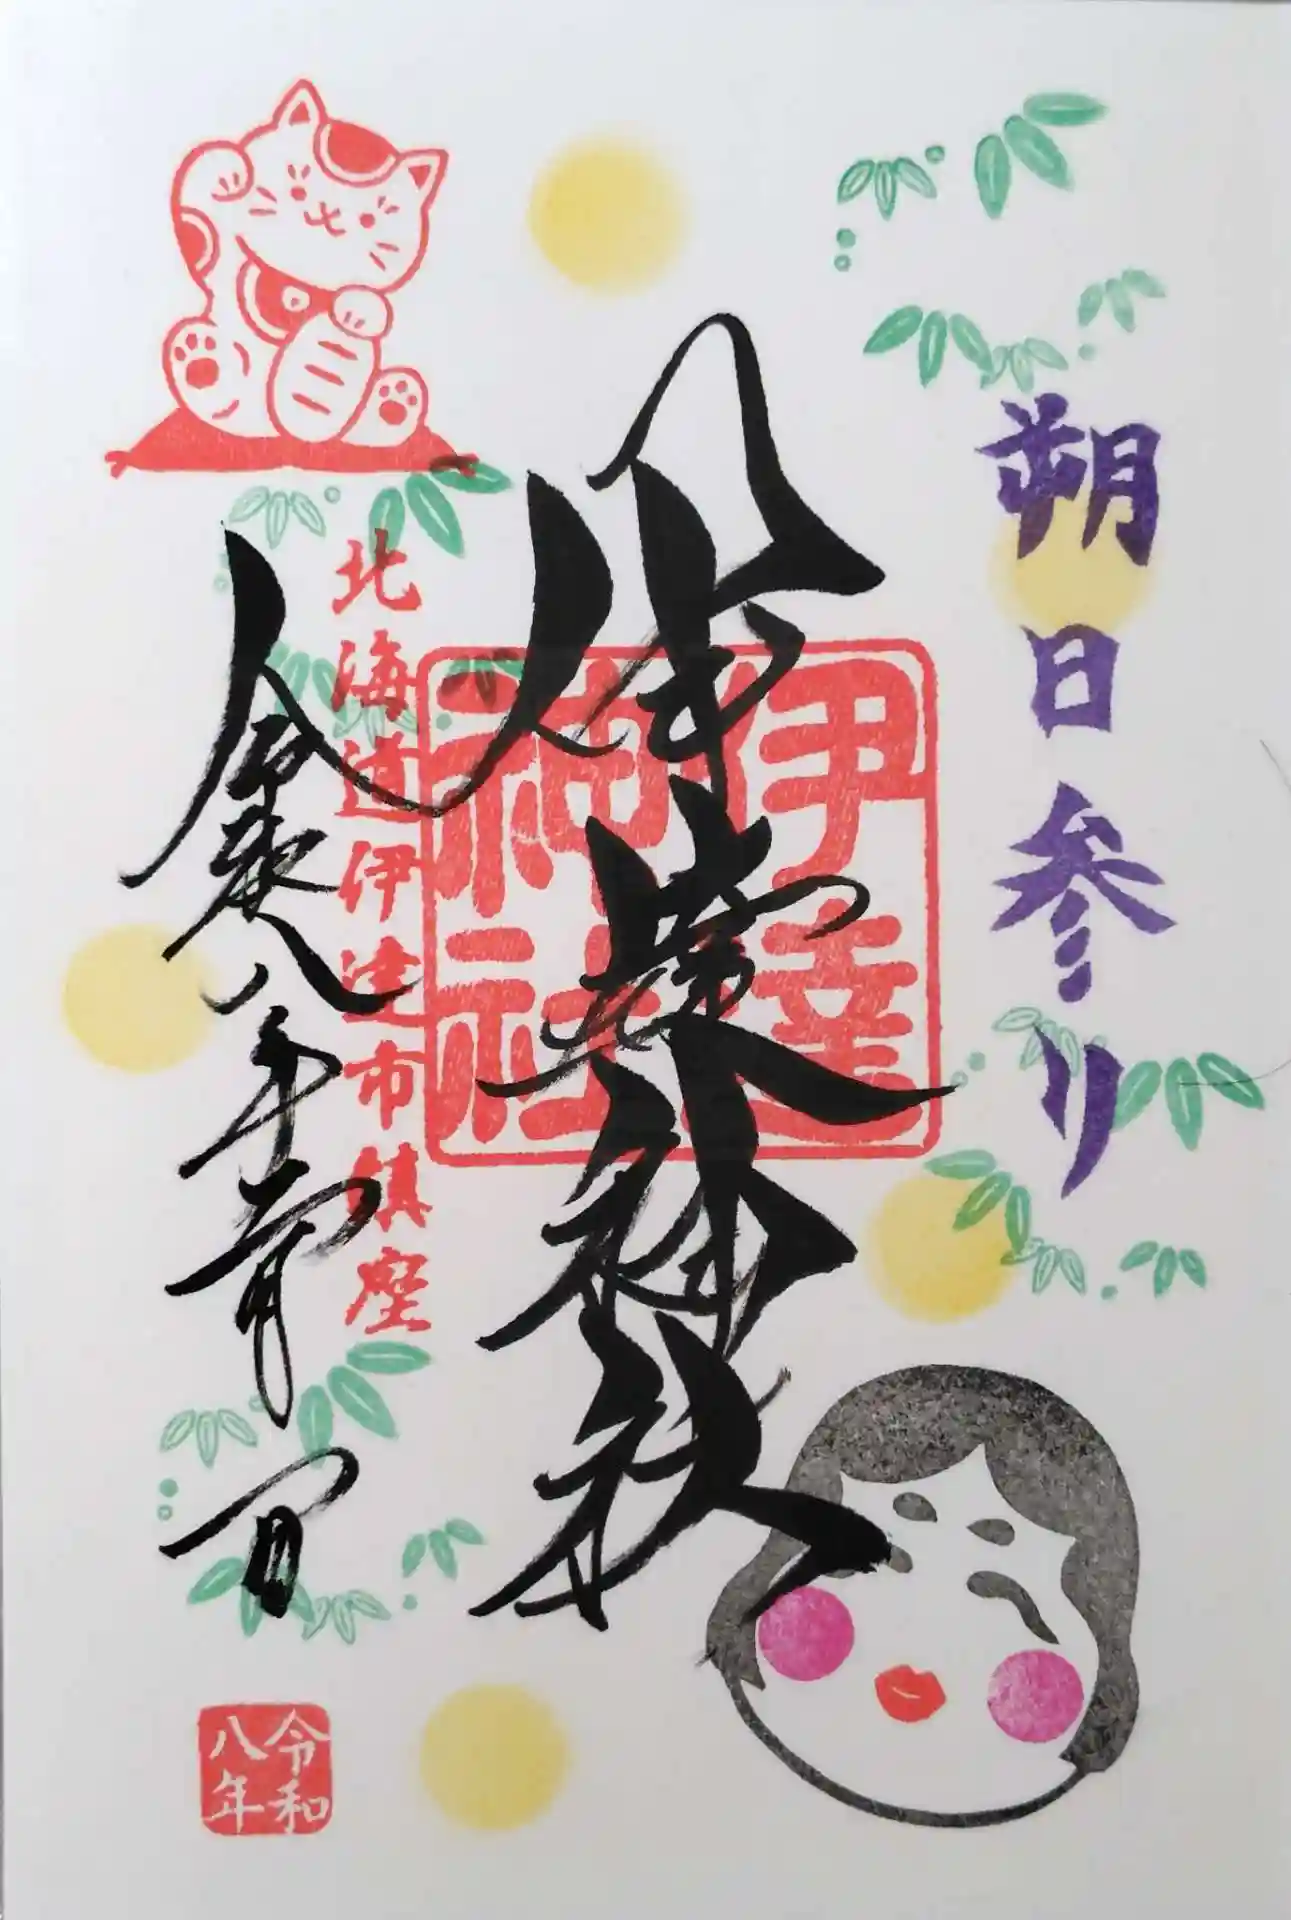 朔日参り
伊達神社
伊達
神社
北海道伊達市鎮座
令和八年 月一日
令和
八年